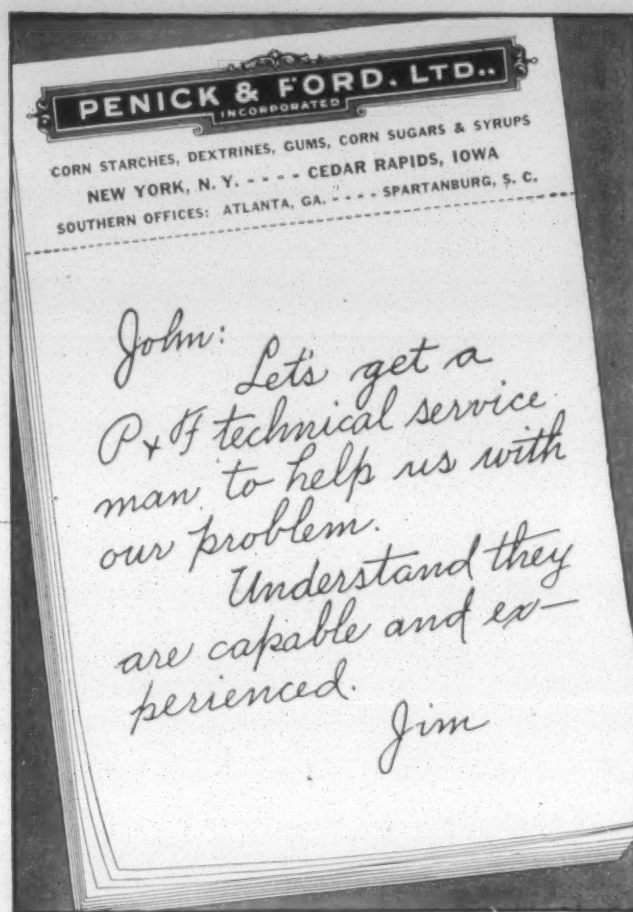 PENICK & FORD, LTD..
INCORPORATED
CORN STARCHES, DEXTRINES, GUMS, CORN SUGARS & SYRUPS
NEW YORK, N. Y. - - - - CEDAR RAPIDS, IOWA
SOUTHERN OFFICES: ATLANTA, GA. - - - - SPARTANBURG, S. C.
John:
Let's get a
P & F technical service
man to help us with
our problem.
Understand they
are capable and ex—
perienced.
Jim